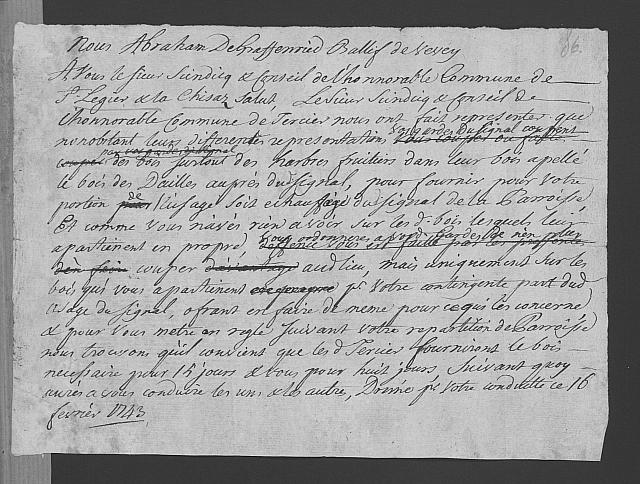 86.
Nous Abraham DeGraffenried Ballif de Vevey
A Vous le Sieur Scindicq & Conseil de l'honnorable Commune de
St Legier & la Chisaz, Salut, Le Sieur Scindicq & Conseil de
l'honnorable Commune de Tercier nous ont fait representer que
nonobstant leurs differentes representations Vos gardes du Signal coupent
couper des bois surtout des harbres fruitiers dans leur bois apellé
le bois des Dailles auprés du Signal, pour fournir pour Votre
portion de l'usage soit echaufage du Signal de la Parroisse
Et comme Vous n'avés rien a voir sur les d. bois lesquels leur
apartienent en propre Vous ordonnerés a Vos d. gardes de n'en plus
d'en faire couper davantage audlieu, mais uniquement sur les
bois qui Vous apartienent pr Votre contingente part dud
usage du Signal, ofrant en faire de meme pour ce qui les concerne
& pour Vous metre en regle Suivant Votre repartition de Parroisse
nous trouvons qu'il convient que les d Tercier fourniront le bois
necessaire pour 15 jours & Vous pour huit jours, Suivant quoy
aurés a vous conduire les uns & les autre, Donné pr Votre conduitte ce 16
fevrier 1743.